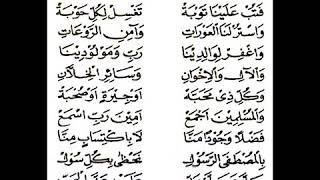 فَتُبْ عَلَيْنَا تَوْبَةً تَغْسِلْ لِكُلِّ حَوْبَةٍ
وَاسْتُرْ لَنَا الْعَوْرَاتِ وَآمِنِ الرَّوْعَاتِ
وَاغْفِرْ لِوَالِدِيْنَا رَبِّ وَمَوْلُوْدِيْنَا
وَالْآلِ وَالْإِخْوَانِ وَسَائِرِ الْخِلَّانِ
وَكُلِّ ذِيْ مَحَبَّةٍ أَوْ جِيْرَةٍ أَوْ صُحْبَةٍ
وَالْمُسْلِمِيْنَ أَجْمَعْ آمِيْنَ رَبِّ اسْمَعْ
فَضْلًا وَجُوْدًا مَنًّا لَا بِاكْتِسَابٍ مِنَّا
بِالْمُصْطَفَى الرَّسُوْلِ نَحْظَى بِكُلِّ سُوْلِ